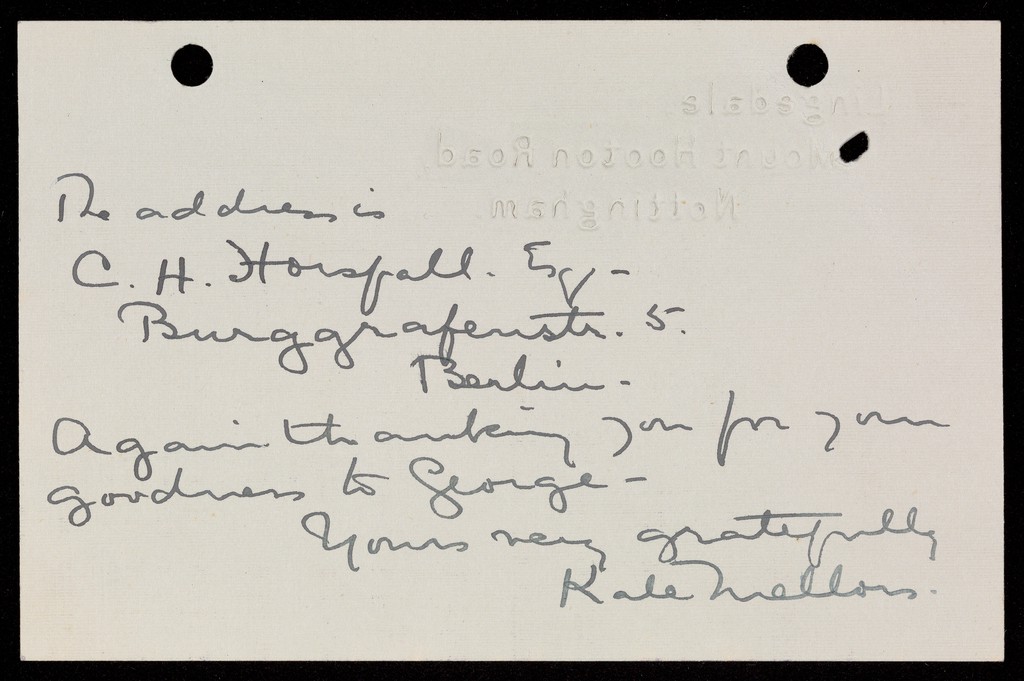 Lingsdale,
Mount Hooton Road,
Nottingham.
The address is
C. H. Horsfall. Esq -
Burggrafenstr. 5.
Berlin -
Again thanking you for your
goodness to George -
Yours very gratefully
Kate Mellors.